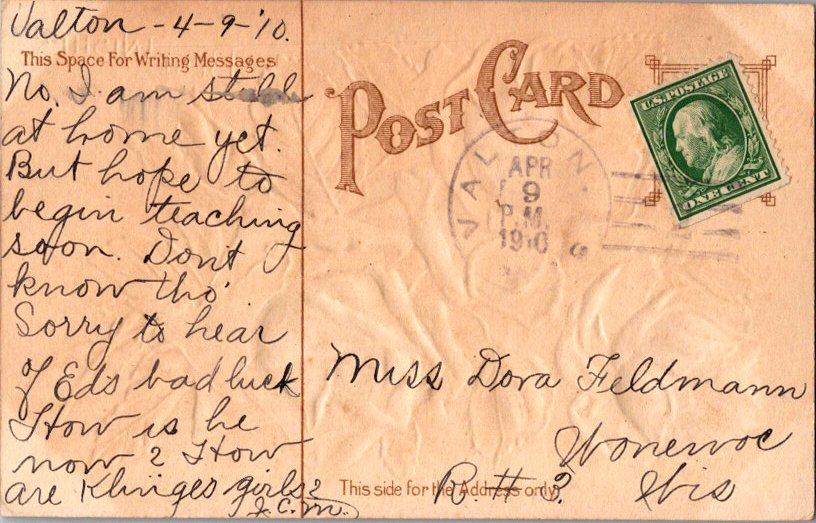 Valton - 4-9-'10.
This Space For Writing Messages
No. I am still
at home yet.
But hope to
begin teaching
soon. Don't
know tho'
Sorry to hear
of Eds bad luck
How is he
now? How
are Klinges girls?
J.C.M.
POST CARD
U.S. POSTAGE
ONE CENT
VALTON.
APR
9
P.M.
1910
Miss Dora Feldmann
Wonewoc
R. # 3. Wis
This side for the Address only